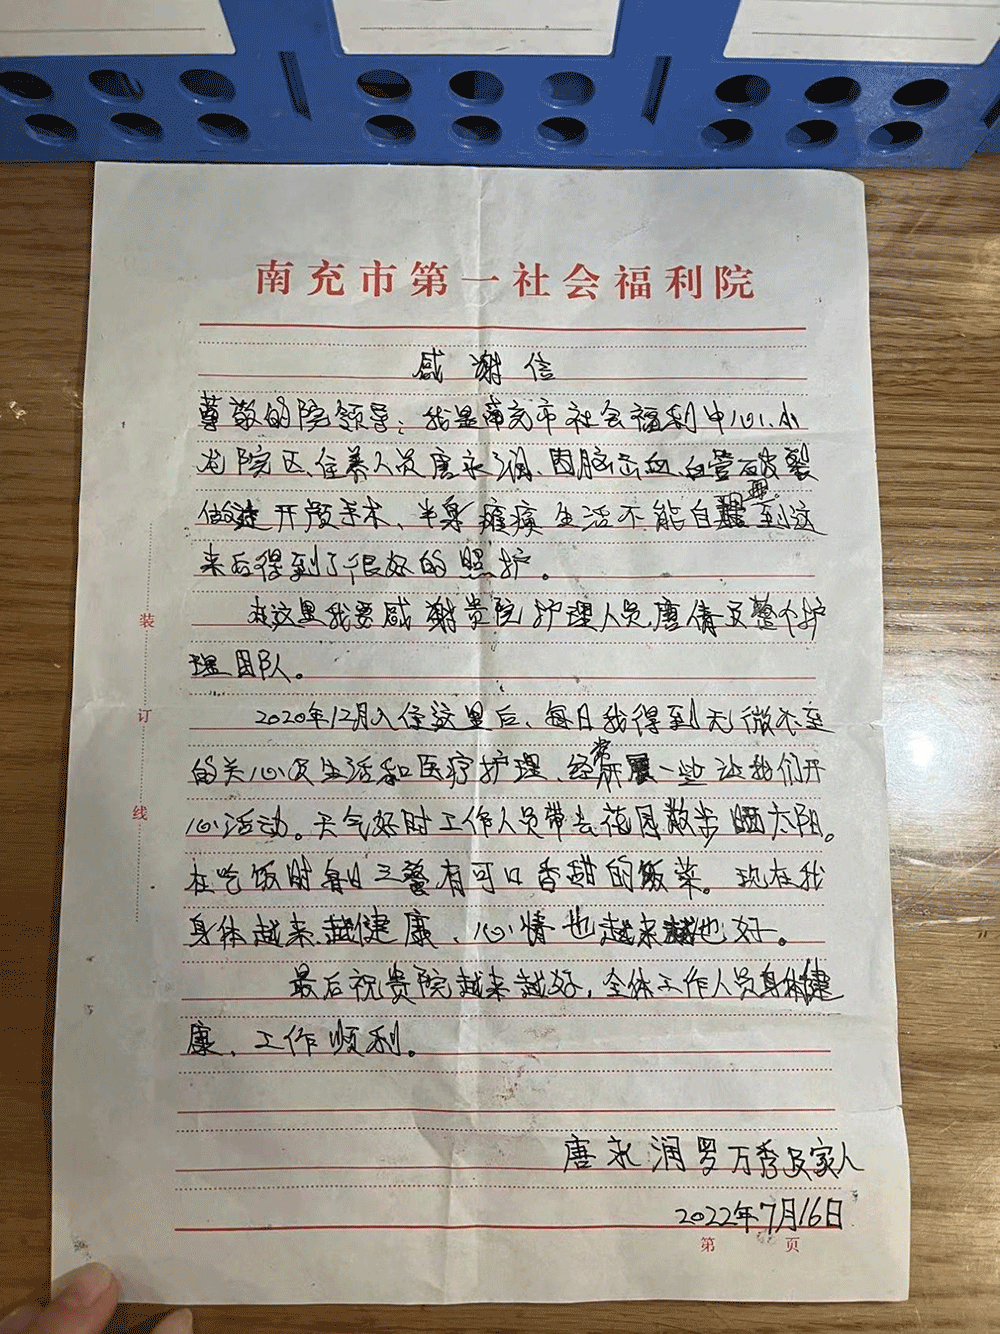 南充市第一社会福利院
感谢信
尊敬的院领导：我是南充市社会福利中心、小
龙院区、住养人员唐永润、因脑出血、血管破裂
做过开颅手术、半身瘫痪生活不能自理。到这
来后得到了很好的照护。
在这里我要感谢贵院护理人员、唐倩及整个护
理团队。
2020年12月入住这里后、每日我得到无微不至
的关心及生活和医疗护理、经常开展一些让我们开
心活动。天气好时工作人员带去花园散步晒太阳。
在吃饭时每日三餐有可口香甜的饭菜。现在我
身体越来越健康、心情也越来越也好。
最后祝贵院越来越好，全体工作人员身体健
康、工作顺利。
唐永润罗万秀及家人
2022年7月16日
第 页
装
订
线